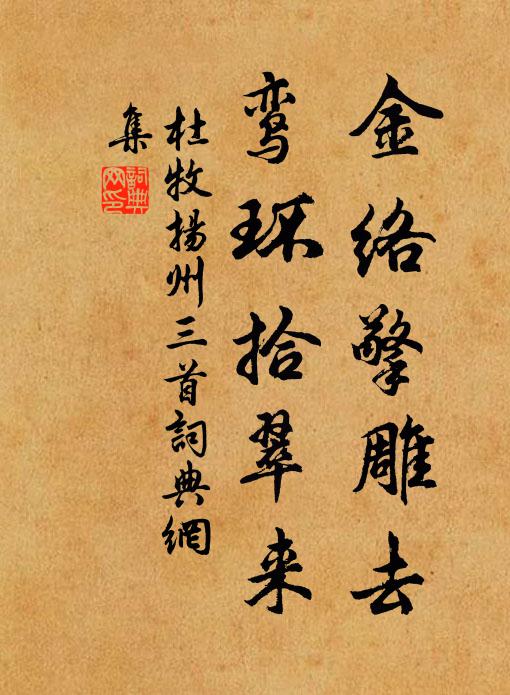 金络擎雕去
鸾环拾翠来
杜牧揚州三首詞典網
集
詞典
网印